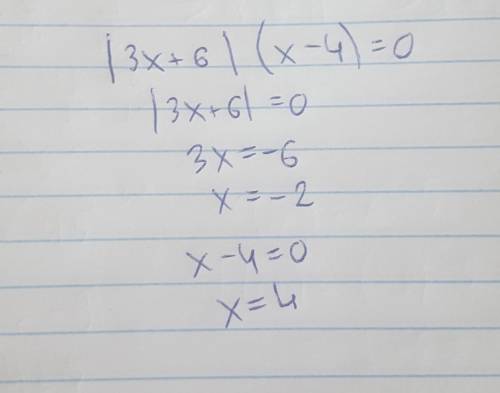 |3x+6| (x-4) = 0
|3x+6| = 0
3x=-6
x=-2
x-4=0
x=4